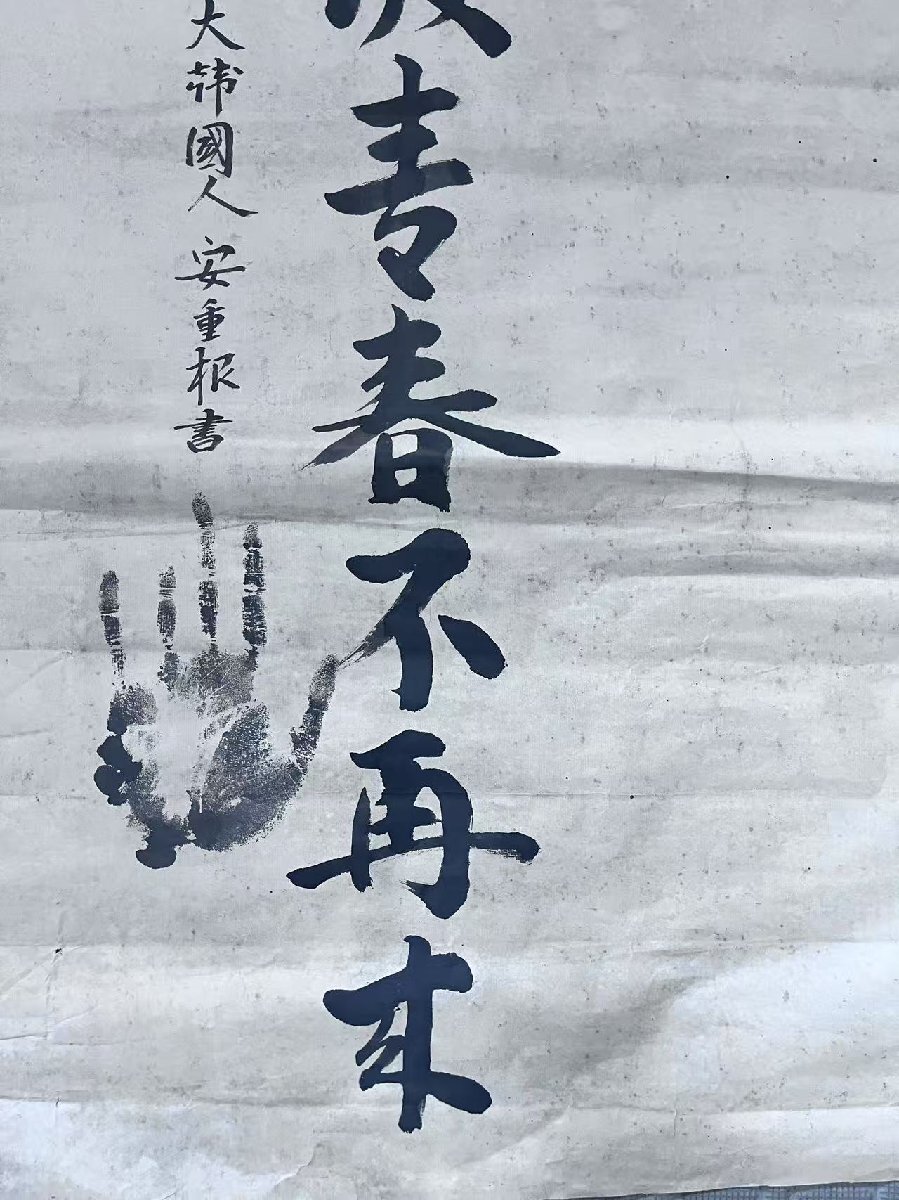 青春不再來
大韓國人 安重根書